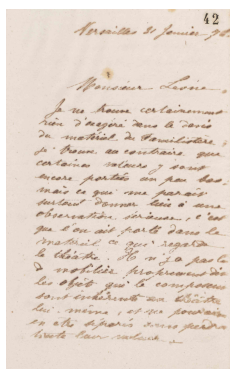 42
Versailles 21 Janvier
Monsieur
Je ne trouve certainement
rien d'exagéré dans le devis
du matériel du Familistère,
je trouve au contraire que
certaines valeurs y sont
encore portées un peu bas.
mais ce qui me paraît
surtout donner lieu à une
observation sérieuse, c'est
que l'on ait porté dans le
matériel ce qui regarde
le théâtre. Il n'y a pas là
de mobilier proprement dit
les objets qui le composent
sont inhérents au théâtre
lui même, et ne pourraient
en être séparés sans perdre
toute leur valeur.